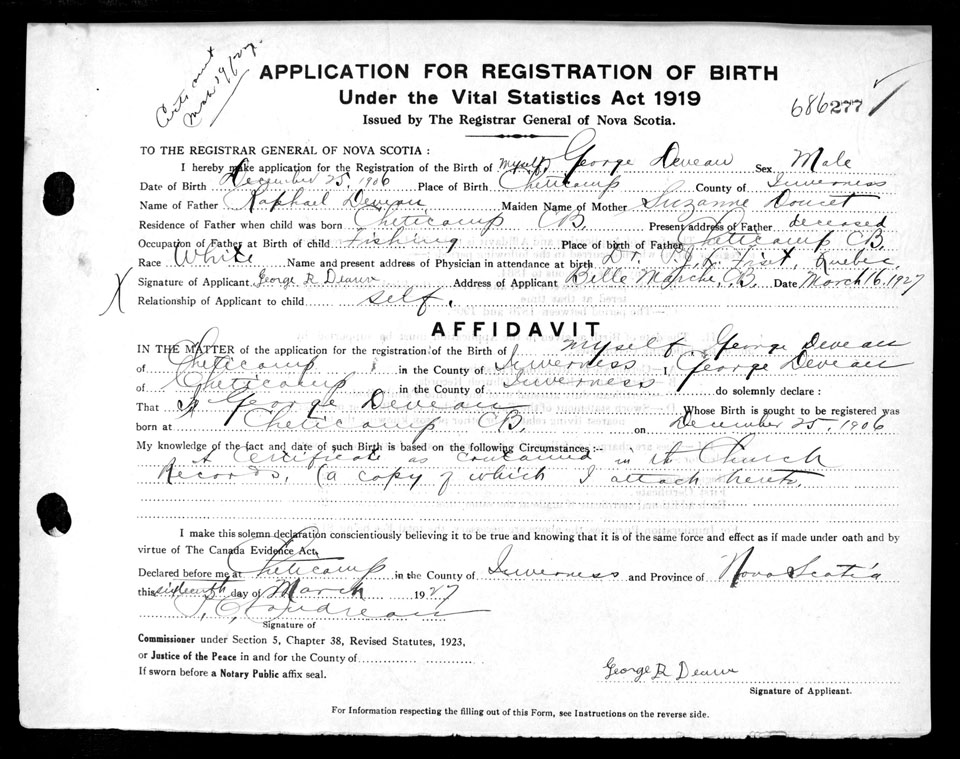 Certs sent
Mch 29/27.
APPLICATION FOR REGISTRATION OF BIRTH
Under the Vital Statistics Act 1919
686277
Issued by The Registrar General of Nova Scotia.
TO THE REGISTRAR GENERAL OF NOVA SCOTIA :
I hereby make application for the Registration of the Birth of Myself, George Deveau Sex Male
Date of Birth December 25, 1906 Place of Birth Cheticamp County of Inverness
Name of Father Raphael Deveau Maiden Name of Mother Suzanne Doucet
Residence of Father when child was born Cheticamp CB. Present address of Father deceased
Occupation of Father at Birth of child Fishing Place of birth of Father Cheticamp CB.
Race White Name and present address of Physician in attendance at birth Dr. Quebec
Signature of Applicant George R Deveau Address of Applicant Belle Marche, CB. Date March 16, 1927
X
Relationship of Applicant to child self.
AFFIDAVIT
IN THE MATTER of the application for the registration of the Birth of myself George Deveau
of Cheticamp in the County of Inverness I, George Deveau
of Cheticamp in the County of Inverness do solemnly declare :
That I George Deveau Whose Birth is sought to be registered was
born at Cheticamp CB. on December 25, 1906
My knowledge of the fact and date of such Birth is based on the following Circumstances :--
A Certificate as contained in the Church
Records, (a copy of which I attach hereto.
I make this solemn declaration conscientiously believing it to be true and knowing that it is of the same force and effect as if made under oath and by
virtue of The Canada Evidence Act.
Declared before me at Cheticamp in the County of Inverness and Province of Nova Scotia
this sixteenth day of March 1927
Signature of
Commissioner under Section 5, Chapter 38, Revised Statutes, 1923,
or Justice of the Peace in and for the County of
If sworn before a Notary Public affix seal.
George R Deveau
Signature of Applicant.
For Information respecting the filling out of this Form, see Instructions on the reverse side.